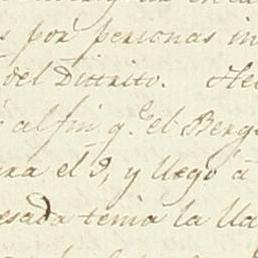 s por personas in
del Distrito. He
al fin q.e el Berg
ra el 9, y llegó á
esada tenia la Ua